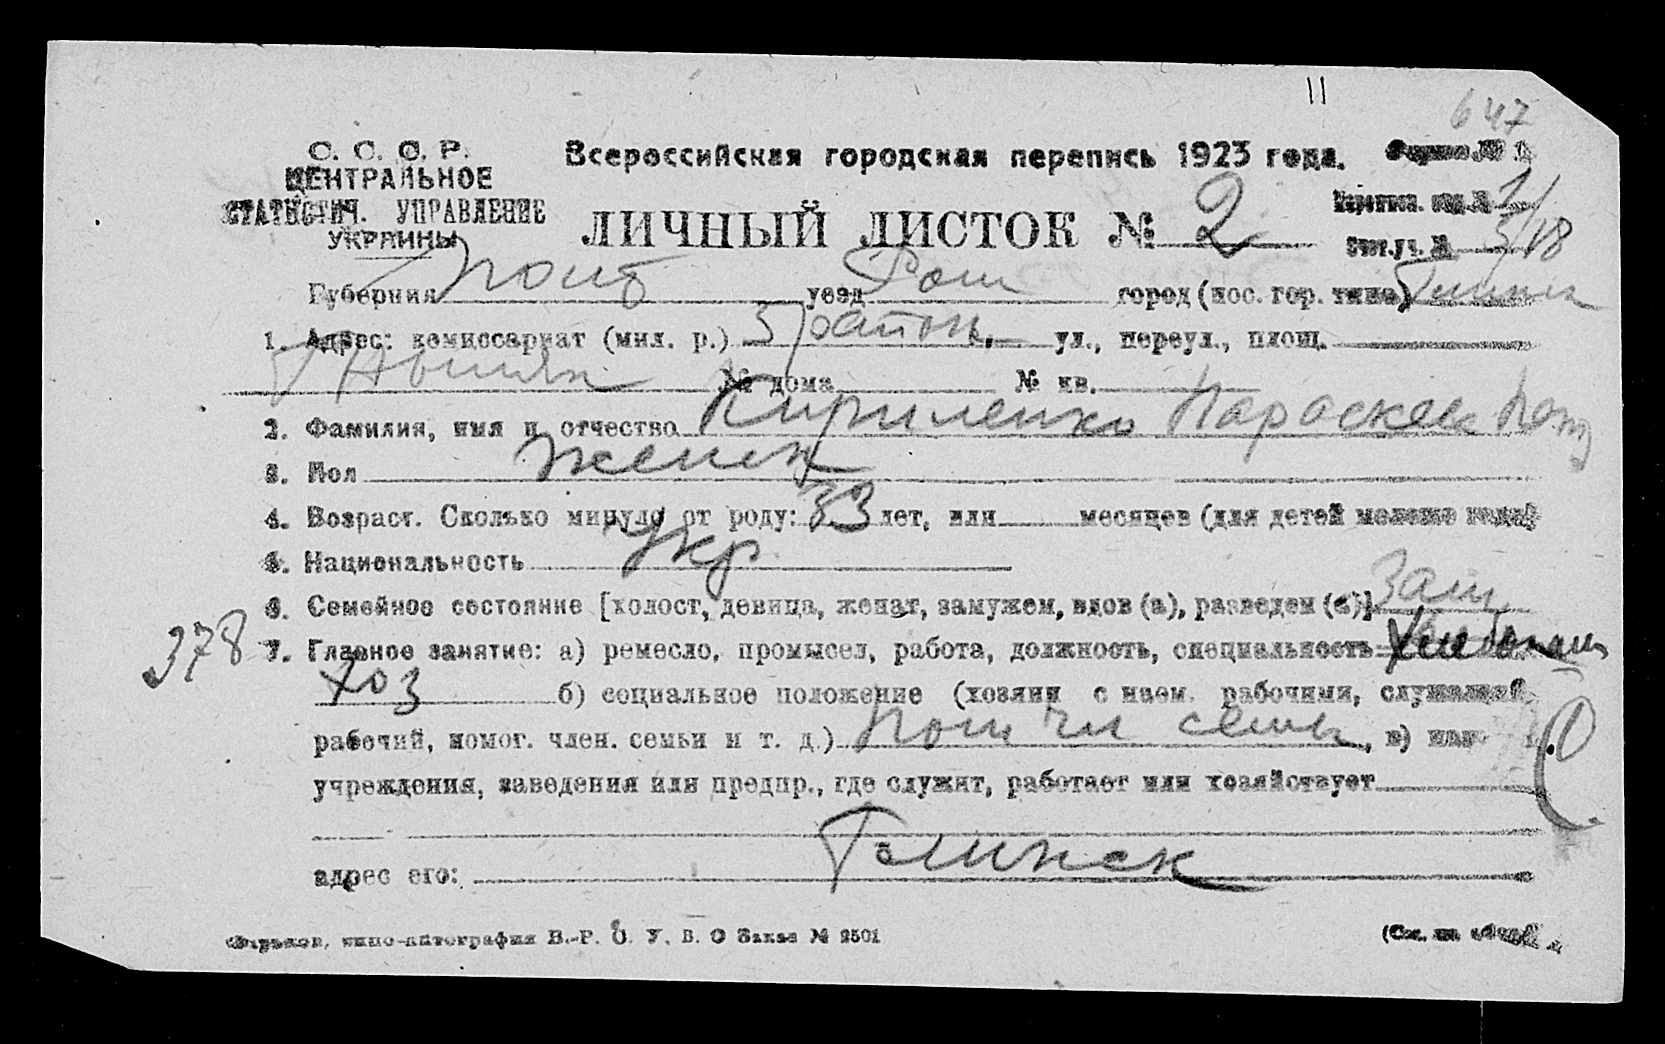 11
647
С. С. С. Р.
ЦЕНТРАЛЬНОЕ
СТАТИСТИЧ. УПРАВЛЕНИЕ
УКРАИНЫ
Всероссийская городская перепись 1923 года.
Форма № 1
ЛИЧНЫЙ ЛИСТОК № 2
Переписн. отд. № 1/
Счет. уч. № 3/18
Губерния Полт уезд Ром город (пос. гор. типа) Глинск
1. Адрес: комиссариат (мил. р.) 3 район, ул., переул., площ.
№ дома № кв.
2. Фамилия, имя и отчество Кириленко Параскева
3. Пол женск
4. Возраст. Сколько минуло от роду: 33 лет, или месяцев (для детей моложе года)
5. Национальность укр
6. Семейное состояние [холост, девица, женат, замужем, вдов (а), разведен (а)] Зам
378 7. Главное занятие: а) ремесло, промысел, работа, должность, специальность
хоз б) социальное положение (хозяин с наем. рабочими, служащий,
рабочий, помог. член. семьи и т. д.) пом чл семьи, в) наз
учреждения, заведения или предпр., где служит, работает или хозяйствует
адрес его: Глинск
Харьков, типо-литография В.-Р. О. У. В. О Заказ № 2501
(См. на обороте